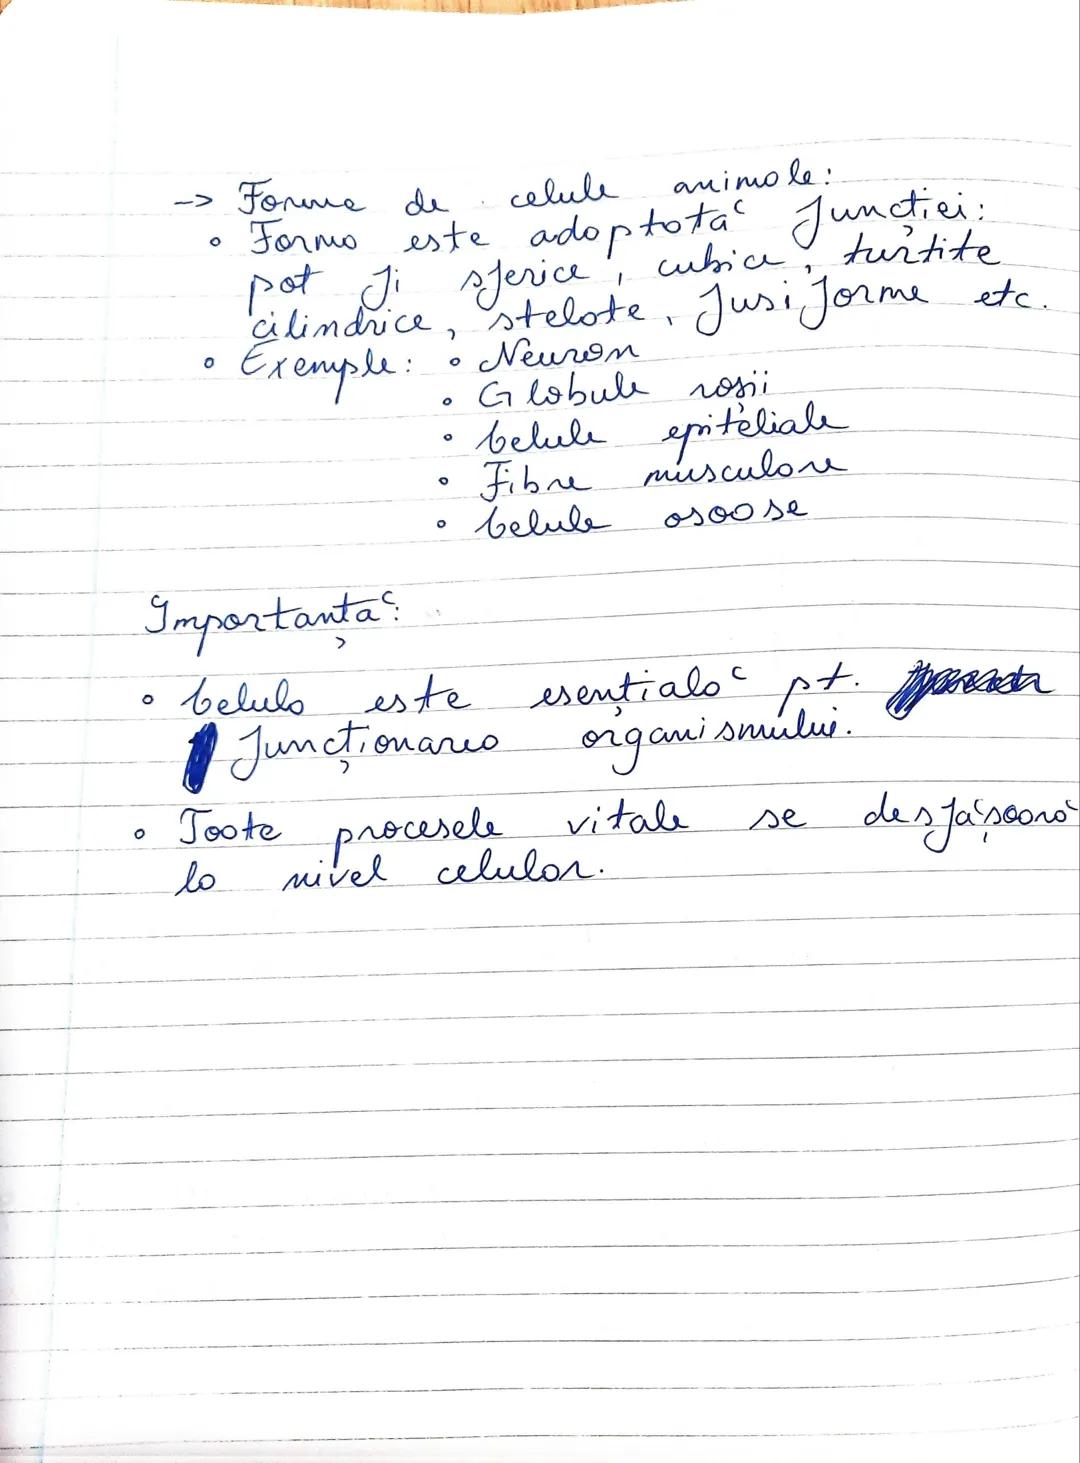 -> Forme de celule animale:
• Forma este adaptată funcției:
pot fi sferice, cubice, turtite
cilindrice, stelate, fusiforme etc.
• Exemple: • Neuron
• Globule roșii
• Celule epiteliale
• Fibre musculare
• Celule osoase
Importanță:
• Celula este esențială pt.
funcționarea organismului.
• Toate procesele vitale se desfășoară
la nivel celular.